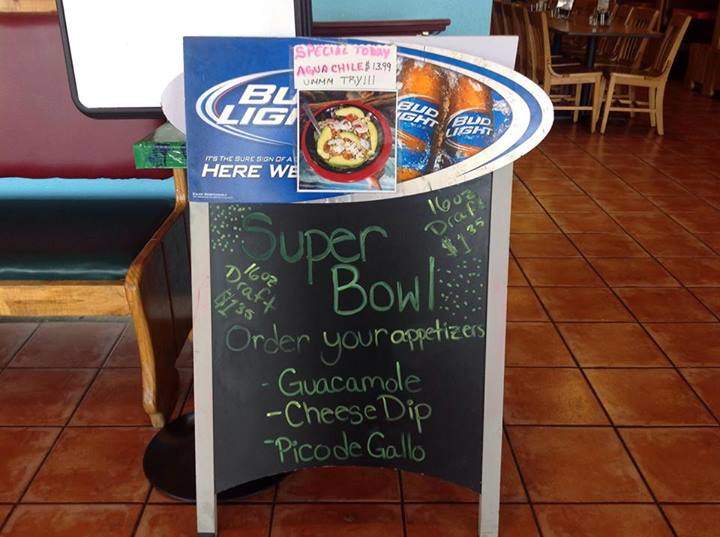 SPECIAL TODAY
AGUA CHILE $13.99
UMMM TRY!!!
BU
LIGH
BUD
LIGHT
BUD
LIGHT
IT'S THE SURE SIGN OF A
HERE WE
Super
Bowl
16oz
Draft
$1.35
16oz
Draft
$1.35
Order your appetizers
- Guacamole
- Cheese Dip
- Pico de Gallo